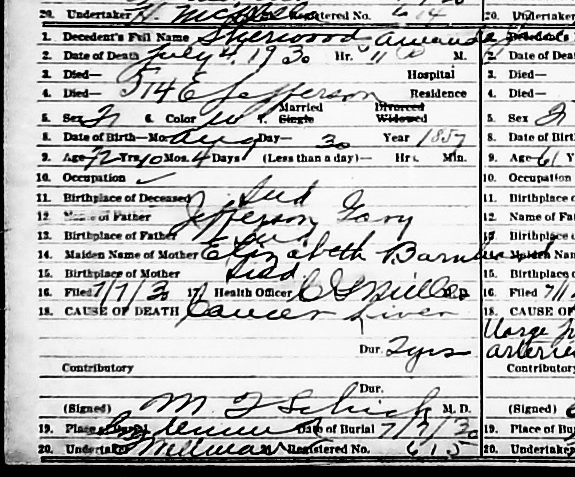 20. Undertaker H. Registered No. 614 20. Undertaker
1. Decedent's Full Name Sherwood Amanda Decedent's
2. Date of Death July 4, 1930 Hr. 11 M. 2. Date of Death
3. Died— Hospital 3. Died—
4. Died— 514 E Jefferson Residence 4. Died—
5. Sex F 6. Color W 7. Married Single Divorced Widowed 5. Sex F
8. Date of Birth—Mo. Aug Day— 30 Year 1857 8. Date of Birth
9. Age 72 Yrs. 10 Mos. 4 Days (Less than a day)— Hrs. Min. 9. Age 61 Y
10. Occupation ✓ 10. Occupation
11. Birthplace of Deceased Ind 11. Birthplace
12. Name of Father Jefferson Gary 12. Name of Fa
13. Birthplace of Father 13. Birthplace
14. Maiden Name of Mother Elizabeth Maiden Nam
15. Birthplace of Mother Ind 15. Birthplace
16. Filed 7/7/30 17. Health Officer C S Miller M.D. 16. Filed 7/1
18. CAUSE OF DEATH Cancer Liver 18. CAUSE OF
Dur. 2 yrs
Contributory Contributory
Dur.
(Signed) M F Schick M. D. (Signed)
19. Place of Burial Date of Burial 7/7/30 19. Place of Bu
20. Undertaker Registered No. 615 20. Undertaker